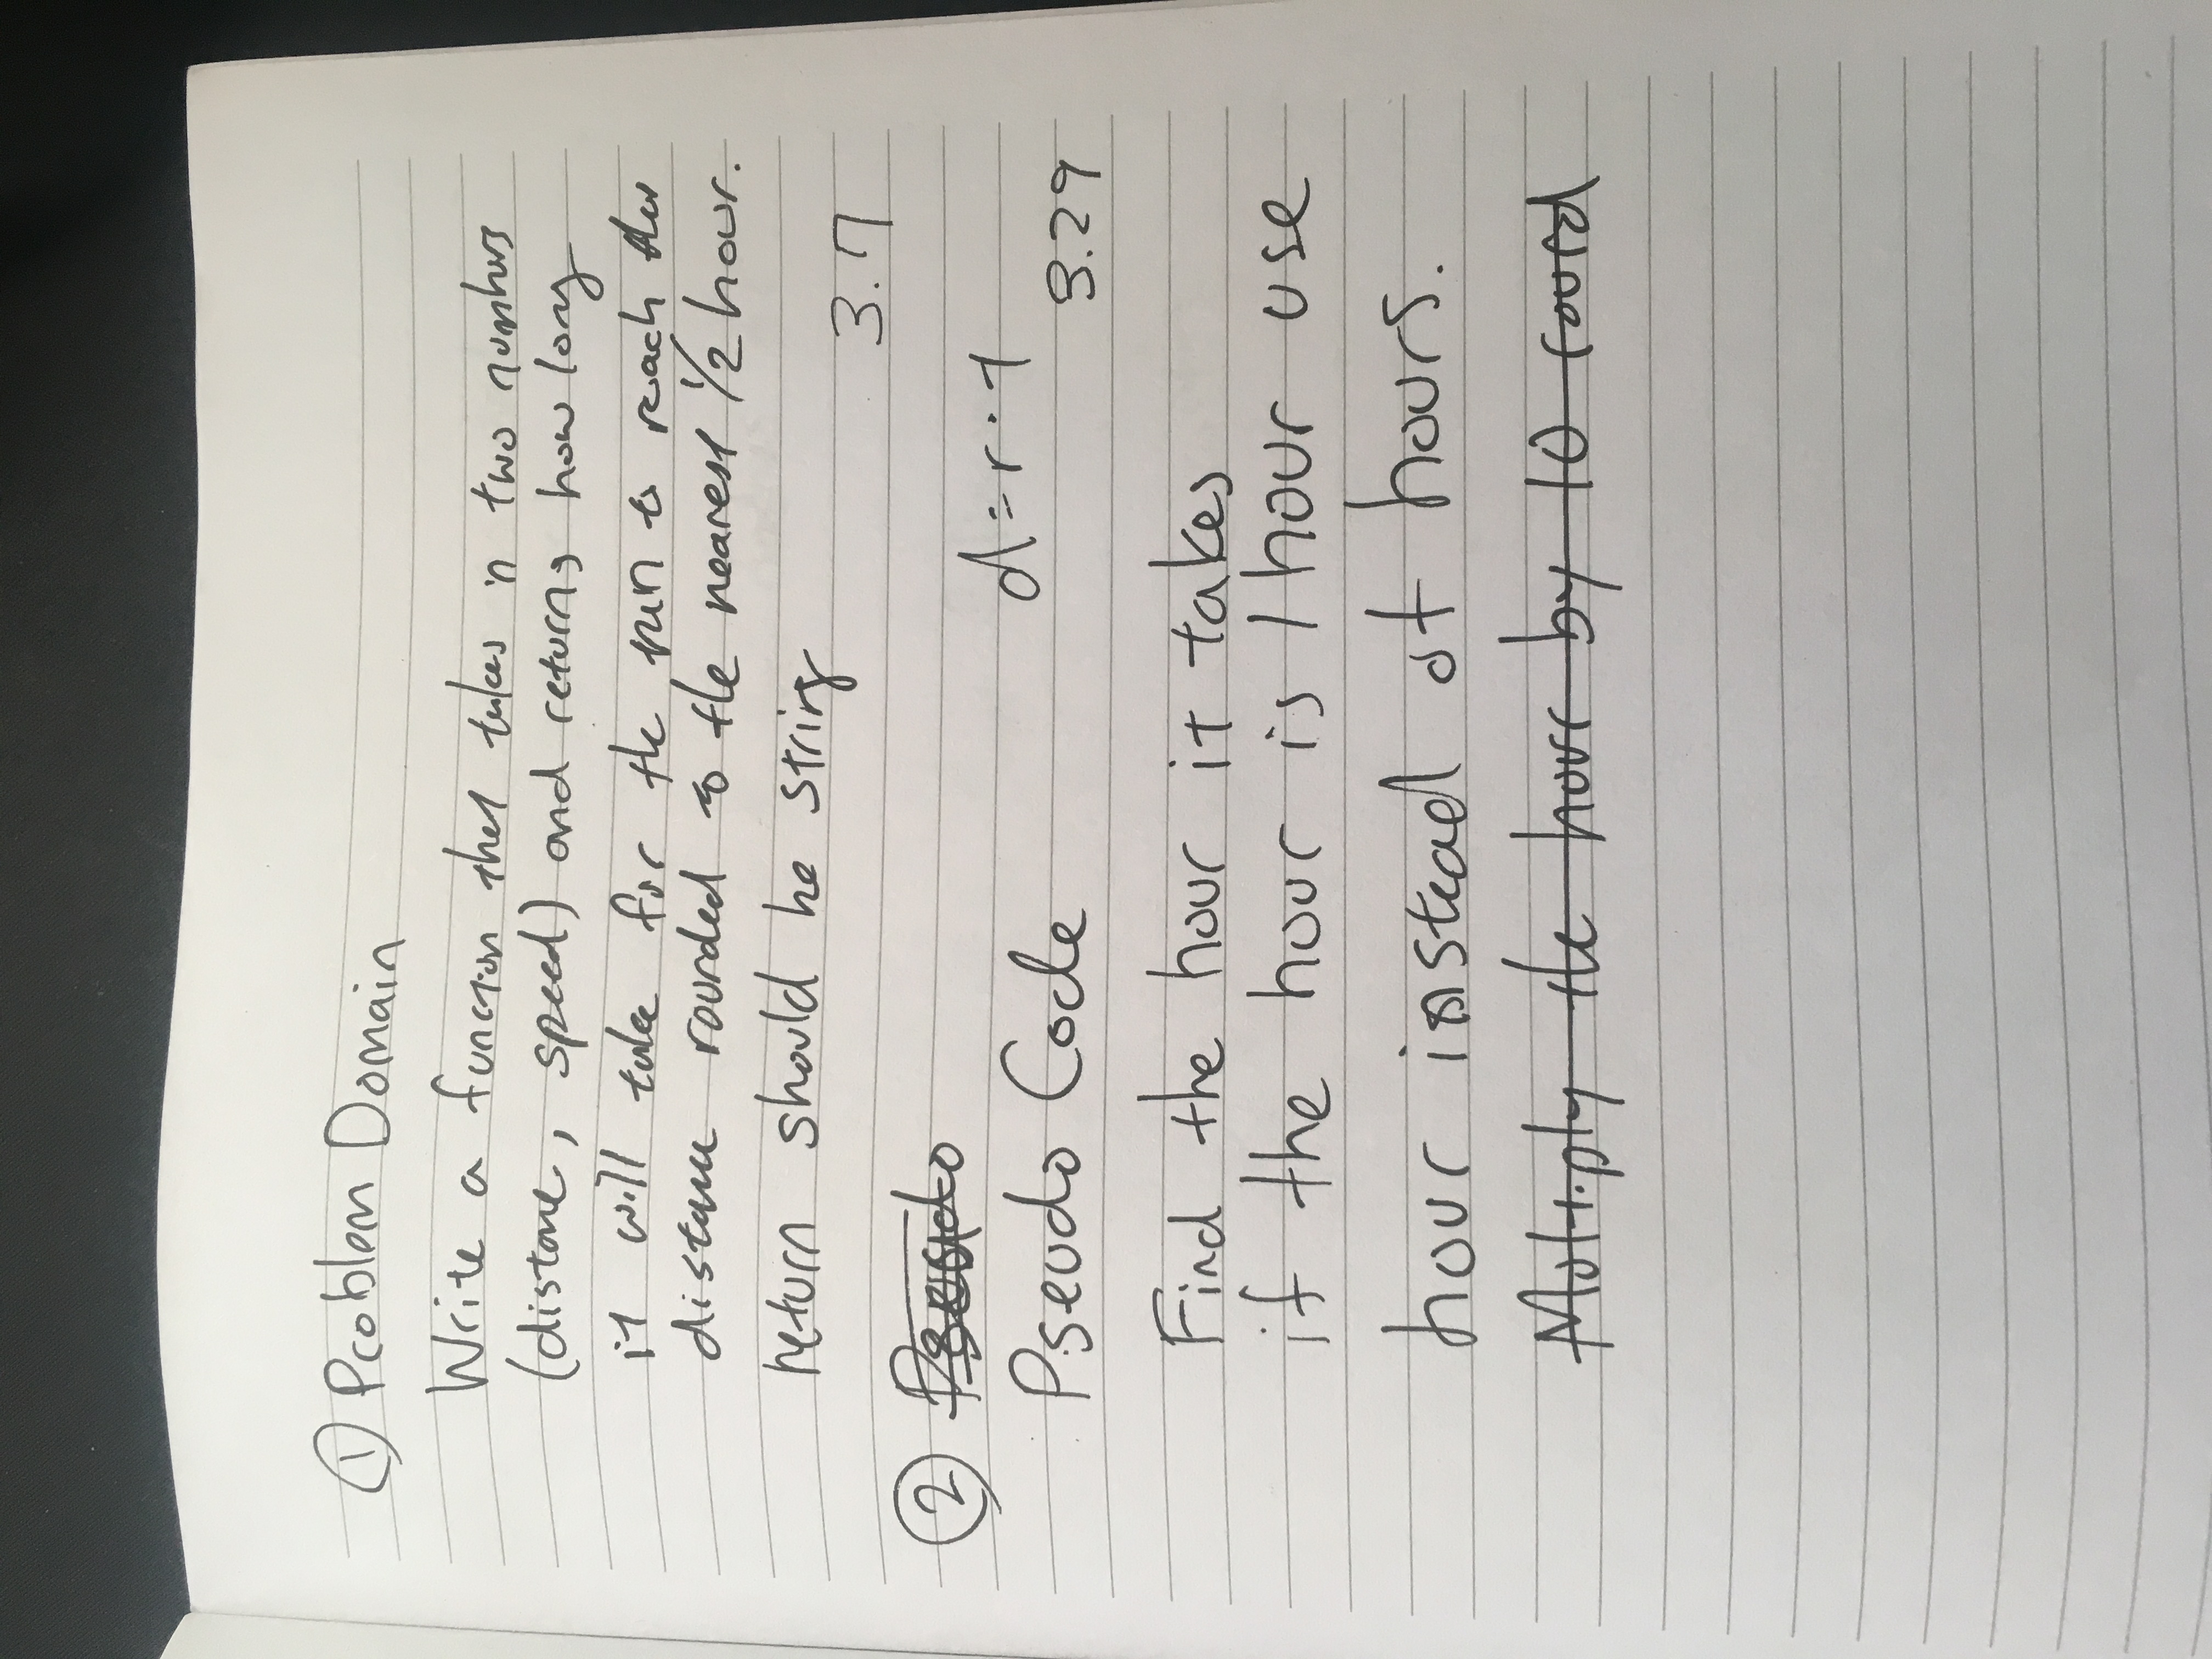 ① Problem Domain
Write a function that takes in two numbers
(distance, speed) and returns how long
it will take for the run to reach the
distance rounded to the nearest 1/2 hour.
return should be string
3.17
②
Pseudo Code
d=r·t
3.29
Find the hour it takes
if the hour is 1 hour use
hour instead of hours.
Multiply the hour by 10 round